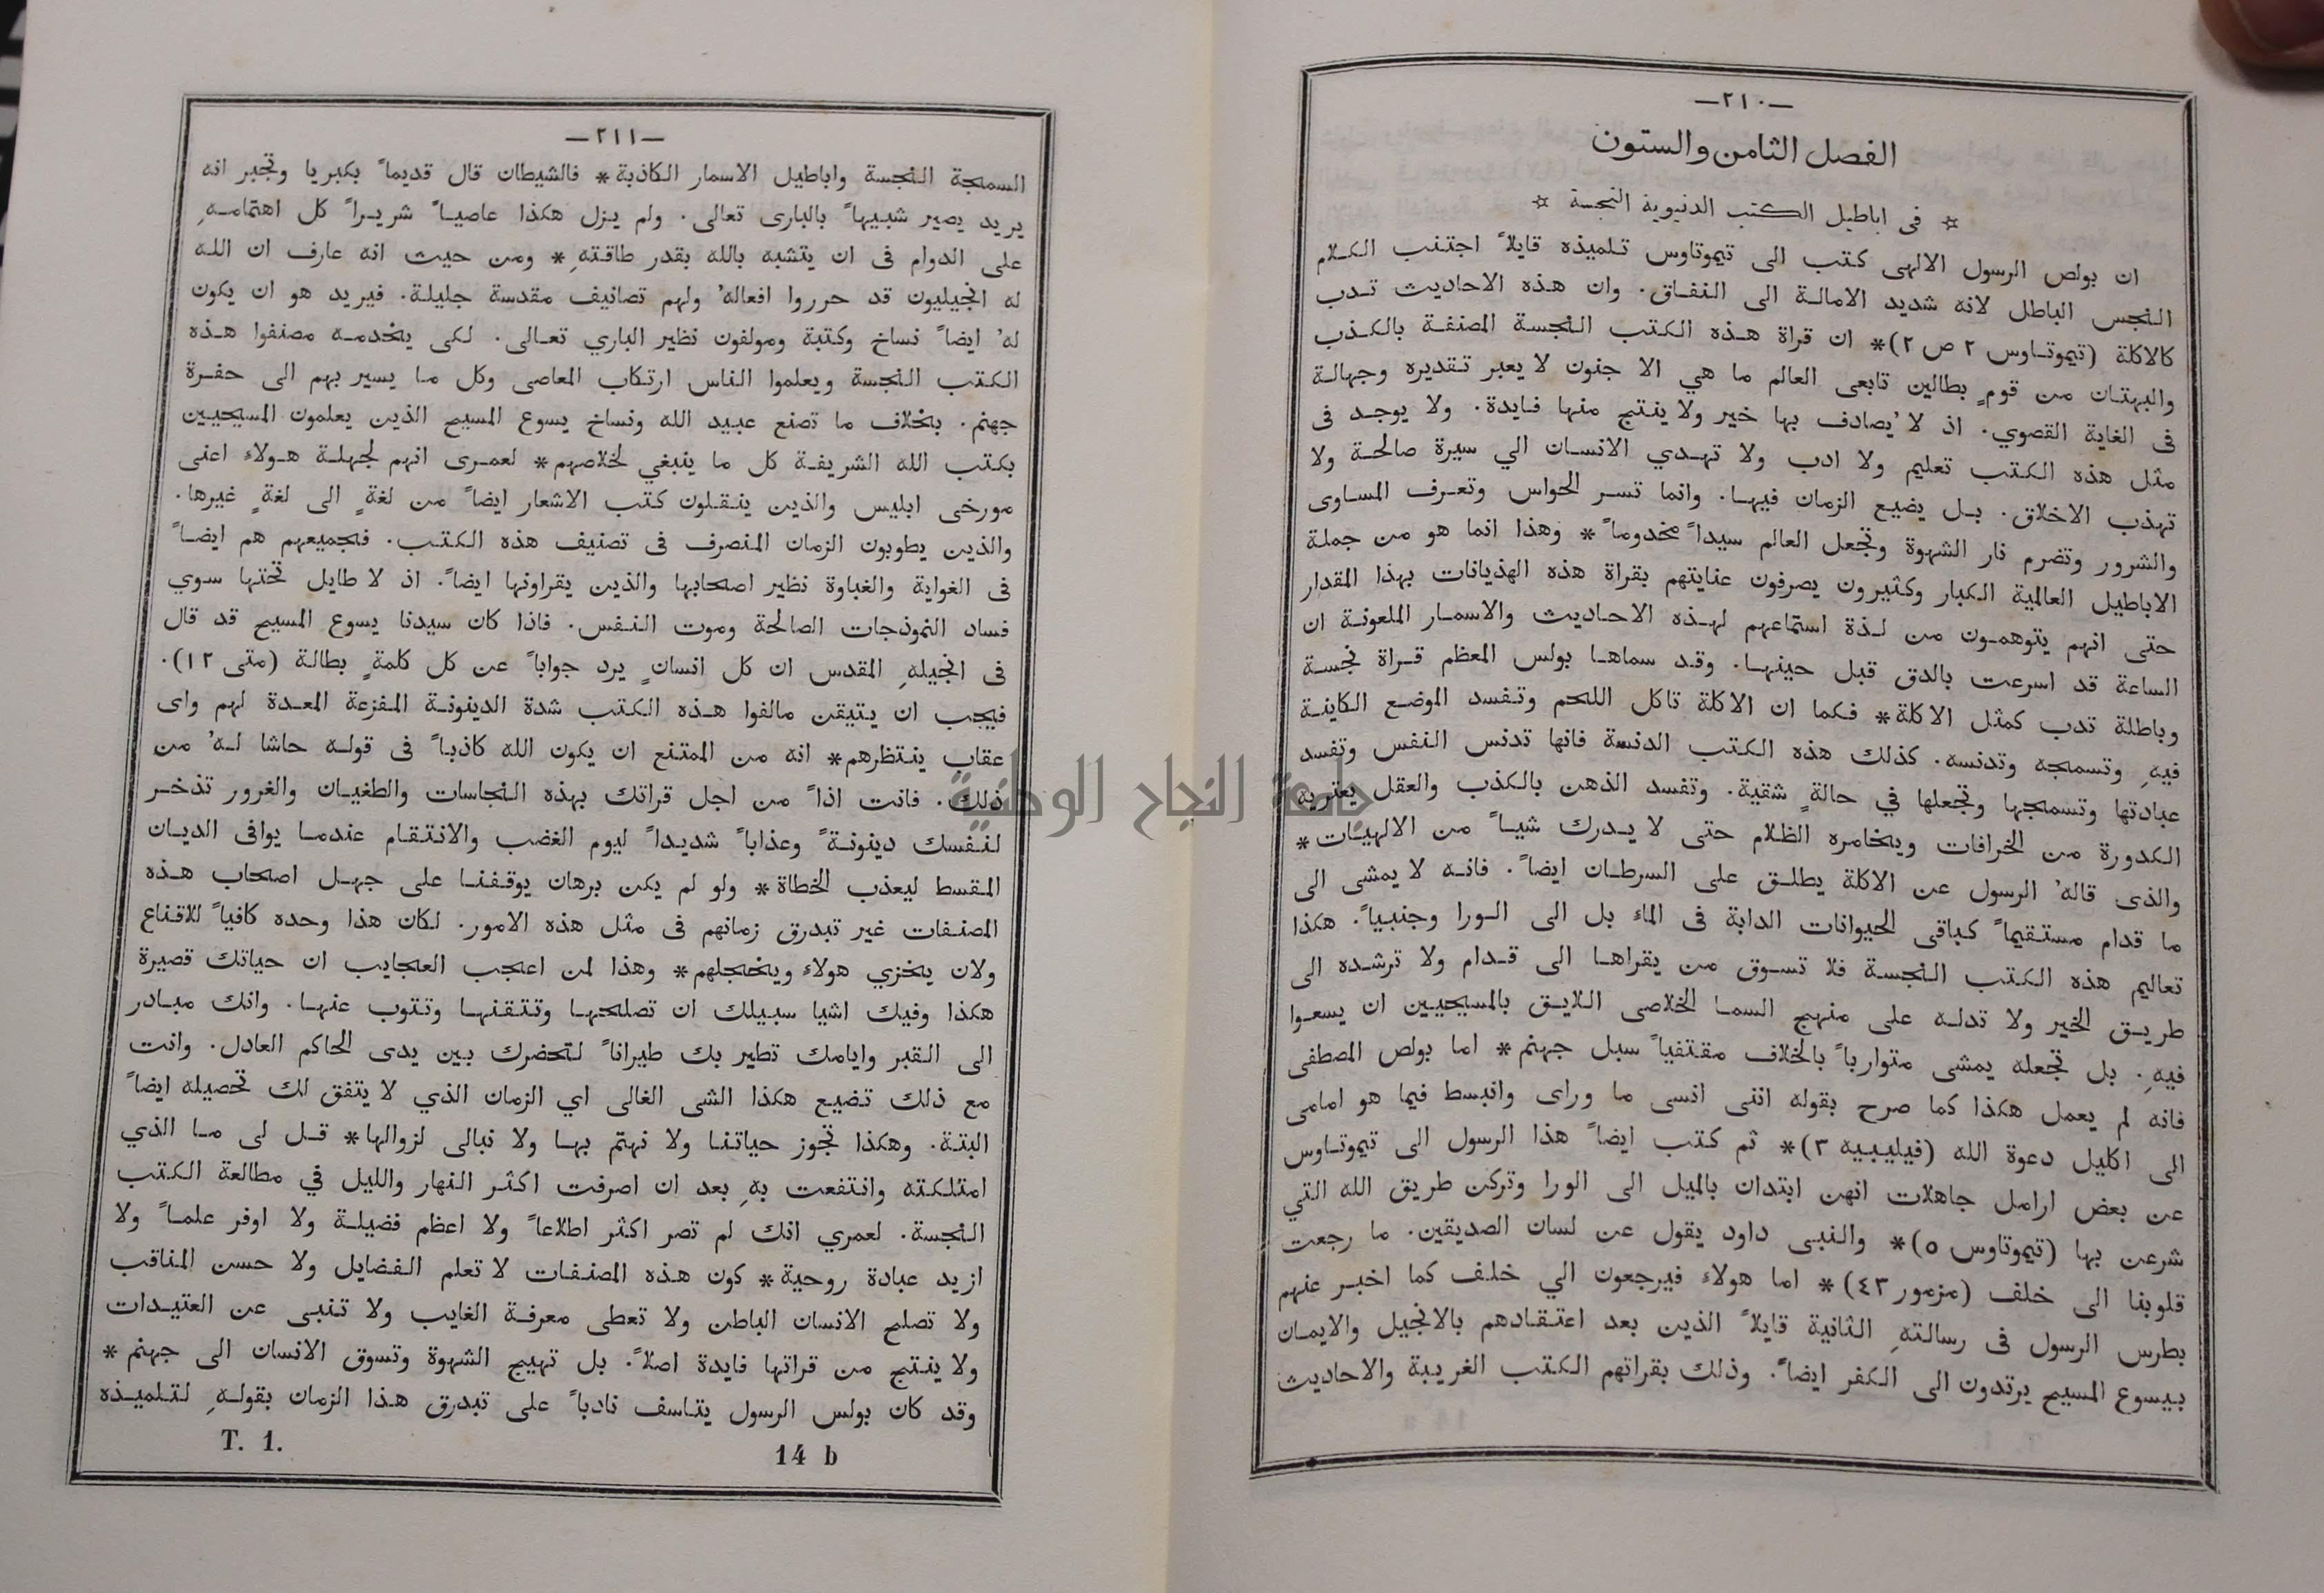 —٢١٠—
الفصل الثامن والستون
☆ فى اباطيل الكتب الدنيوية النجسة ☆
ان بولص الرسول الالهى كتب الى تيموتاوس تلميذه قايلاً اجتنب الكلام
النجس الباطل لانه شديد الامالة الى النفاق. وان هذه الاحاديث تدب
كالاكلة (تيموتاوس ٢ ص ٢)* ان قراة هذه الكتب النجسة المصنفة بالكذب
والبهتان من قومٍ بطالين تابعى العالم ما هي الا جنون لا يعبر تقديره وجهالة
فى الغاية القصوي. اذ لا يُصادف بها خير ولا ينتج منها فايدة. ولا يوجد فى
مثل هذه الكتب تعليم ولا ادب ولا تهدي الانسان الي سيرة صالحة ولا
تهذب الاخلاق. بل يضيع الزمان فيها. وانما تسر الحواس وتعرف المساوى
والشرور وتضرم نار الشهوة وتجعل العالم سيداً مخدوماً* وهذا انما هو من جملة
الاباطيل العالمية الكبار وكثيرون يصرفون عنايتهم بقراة هذه الهذيانات بهذا المقدار
حتى انهم يتوهمون من لذة استماعهم لهذه الاحاديث والاسمار الملعونة ان
الساعة قد اسرعت بالدق قبل حينها. وقد سماها بولس المعظم قراة نجسة
وباطلة تدب كمثل الاكلة* فكما ان الاكلة تاكل اللحم وتفسد الموضع الكاينة
فيهِ وتسمجه وتدنسه. كذلك هذه الكتب الدنسة فانها تدنس النفس وتفسد
عبادتها وتسمجها وتجعلها في حالةٍ شقية. وتفسد الذهن بالكذب والعقل يعتريه
الكدورة من الخرافات ويخامره الظلام حتى لا يدرك شياً من الالهيات*
والذى قاله' الرسول عن الاكلة يطلق على السرطان ايضاً. فانه لا يمشى الى
ما قدام مستقيماً كباقى الحيوانات الدابة فى الماء بل الى الورا وجنبياً. هكذا
تعاليم هذه الكتب النجسة فلا تسوق من يقراها الى قدام ولا ترشده الى
طريق الخير ولا تدله على منهج السما الخلاصى اللايق بالمسيحيين ان يسعوا
فيهِ. بل تجعله يمشى متوارباً بالخلاف مقتفياً سبل جهنم* اما بولص المصطفى
فانه لم يعمل هكذا كما صرح بقوله اننى انسى ما وراى وانبسط فيما هو امامى
الى اكليل دعوة الله (فيليبيه ٣)* ثم كتب ايضاً هذا الرسول الى تيموتاوس
عن بعض ارامل جاهلات انهن ابتدان بالميل الى الورا وتركن طريق الله التي
شرعن بها (تيموتاوس ٥)* والنبى داود يقول عن لسان الصديقين. ما رجعت
قلوبنا الى خلف (مزمور ٤٣)* اما هولاء فيرجعون الي خلف كما اخبر عنهم
بطرس الرسول فى رسالتهِ الثانية قايلاً الذين بعد اعتقادهم بالانجيل والايمان
بيسوع المسيح يرتدون الى الكفر ايضاً. وذلك بقراتهم الكتب الغريبة والاحاديث
—٢١١—
السمجة النجسة واباطيل الاسمار الكاذبة* فالشيطان قال قديماً بكبريا وتجبر انه
يريد يصير شبيهاً بالبارى تعالى. ولم يزل هكذا عاصياً شريراً كل اهتمامهِ
على الدوام فى ان يتشبه بالله بقدر طاقتهِ* ومن حيث انه عارف ان الله
له انجيليون قد حرروا افعاله' ولهم تصانيف مقدسة جليلة. فيريد هو ان يكون
له' ايضاً نساخ وكتبة ومولفون نظير الباري تعالى. لكى يخدمه مصنفوا هذه
الكتب النجسة ويعلموا الناس ارتكاب المعاصى وكل ما يسير بهم الى حفرة
جهنم. بخلاف ما تصنع عبيد الله ونساخ يسوع المسيح الذين يعلمون المسيحيين
بكتب الله الشريفة كل ما ينبغي لخلاصهم* لعمرى انهم لجهلة هولاء اعنى
مورخى ابليس والذين ينقلون كتب الاشعار ايضاً من لغةٍ الى لغةٍ غيرها.
والذين يطوبون الزمان المنصرف فى تصنيف هذه الكتب. فجميعهم هم ايضاً
فى الغواية والغباوة نظير اصحابها والذين يقراونها ايضاً. اذ لا طايل تحتها سوي
فساد النموذجات الصالحة وموت النفس. فاذا كان سيدنا يسوع المسيح قد قال
فى انجيلهِ المقدس ان كل انسانٍ يرد جواباً عن كل كلمةٍ بطالة (متى ١٢).
فيجب ان يتيقن مالفوا هذه الكتب شدة الدينونة المفزعة المعدة لهم واى
عقاب ينتظرهم* انه من الممتنع ان يكون الله كاذباً فى قوله حاشا له' من
ذلك. فانت اذاً من اجل قراتك بهذه النجاسات والطغيان والغرور تذخر
لنفسك دينونةً وعذاباً شديداً ليوم الغضب والانتقام عندما يوافى الديان
المقسط ليعذب الخطاة* ولو لم يكن برهان يوقفنا على جهل اصحاب هذه
المصنفات غير تبدرق زمانهم فى مثل هذه الامور. لكان هذا وحده كافياً للاقناع
ولان يخزي هولاء ويخجلهم* وهذا لمن اعجب العجايب ان حياتك قصيرة
هكذا وفيك اشيا سبيلك ان تصلحها وتتقنها وتتوب عنها. وانك مبادر
الى القبر وايامك تطير بك طيراناً لتحضرك بين يدى الحاكم العادل. وانت
مع ذلك تضيع هكذا الشى الغالى اي الزمان الذي لا يتفق لك تحصيله ايضاً
البتة. وهكذا تجوز حياتنا ولا نهتم بها ولا نبالى لزوالها* قل لى ما الذي
امتلكته وانتفعت بهِ بعد ان اصرفت اكثر النهار والليل في مطالعة الكتب
النجسة. لعمري انك لم تصر اكثر اطلاعاً ولا اعظم فضيلة ولا اوفر علماً ولا
ازيد عبادة روحية* كون هذه المصنفات لا تعلم الفضايل ولا حسن المناقب
ولا تصلح الانسان الباطن ولا تعطى معرفة الغايب ولا تنبى عن العتيدات
ولا ينتج من قراتها فايدة اصلاً. بل تهيج الشهوة وتسوق الانسان الى جهنم*
وقد كان بولس الرسول يتاسف نادباً على تبدرق هذا الزمان بقولهِ لتلميذه
T. 1. 14 b
جامعة النجاح الوطنية